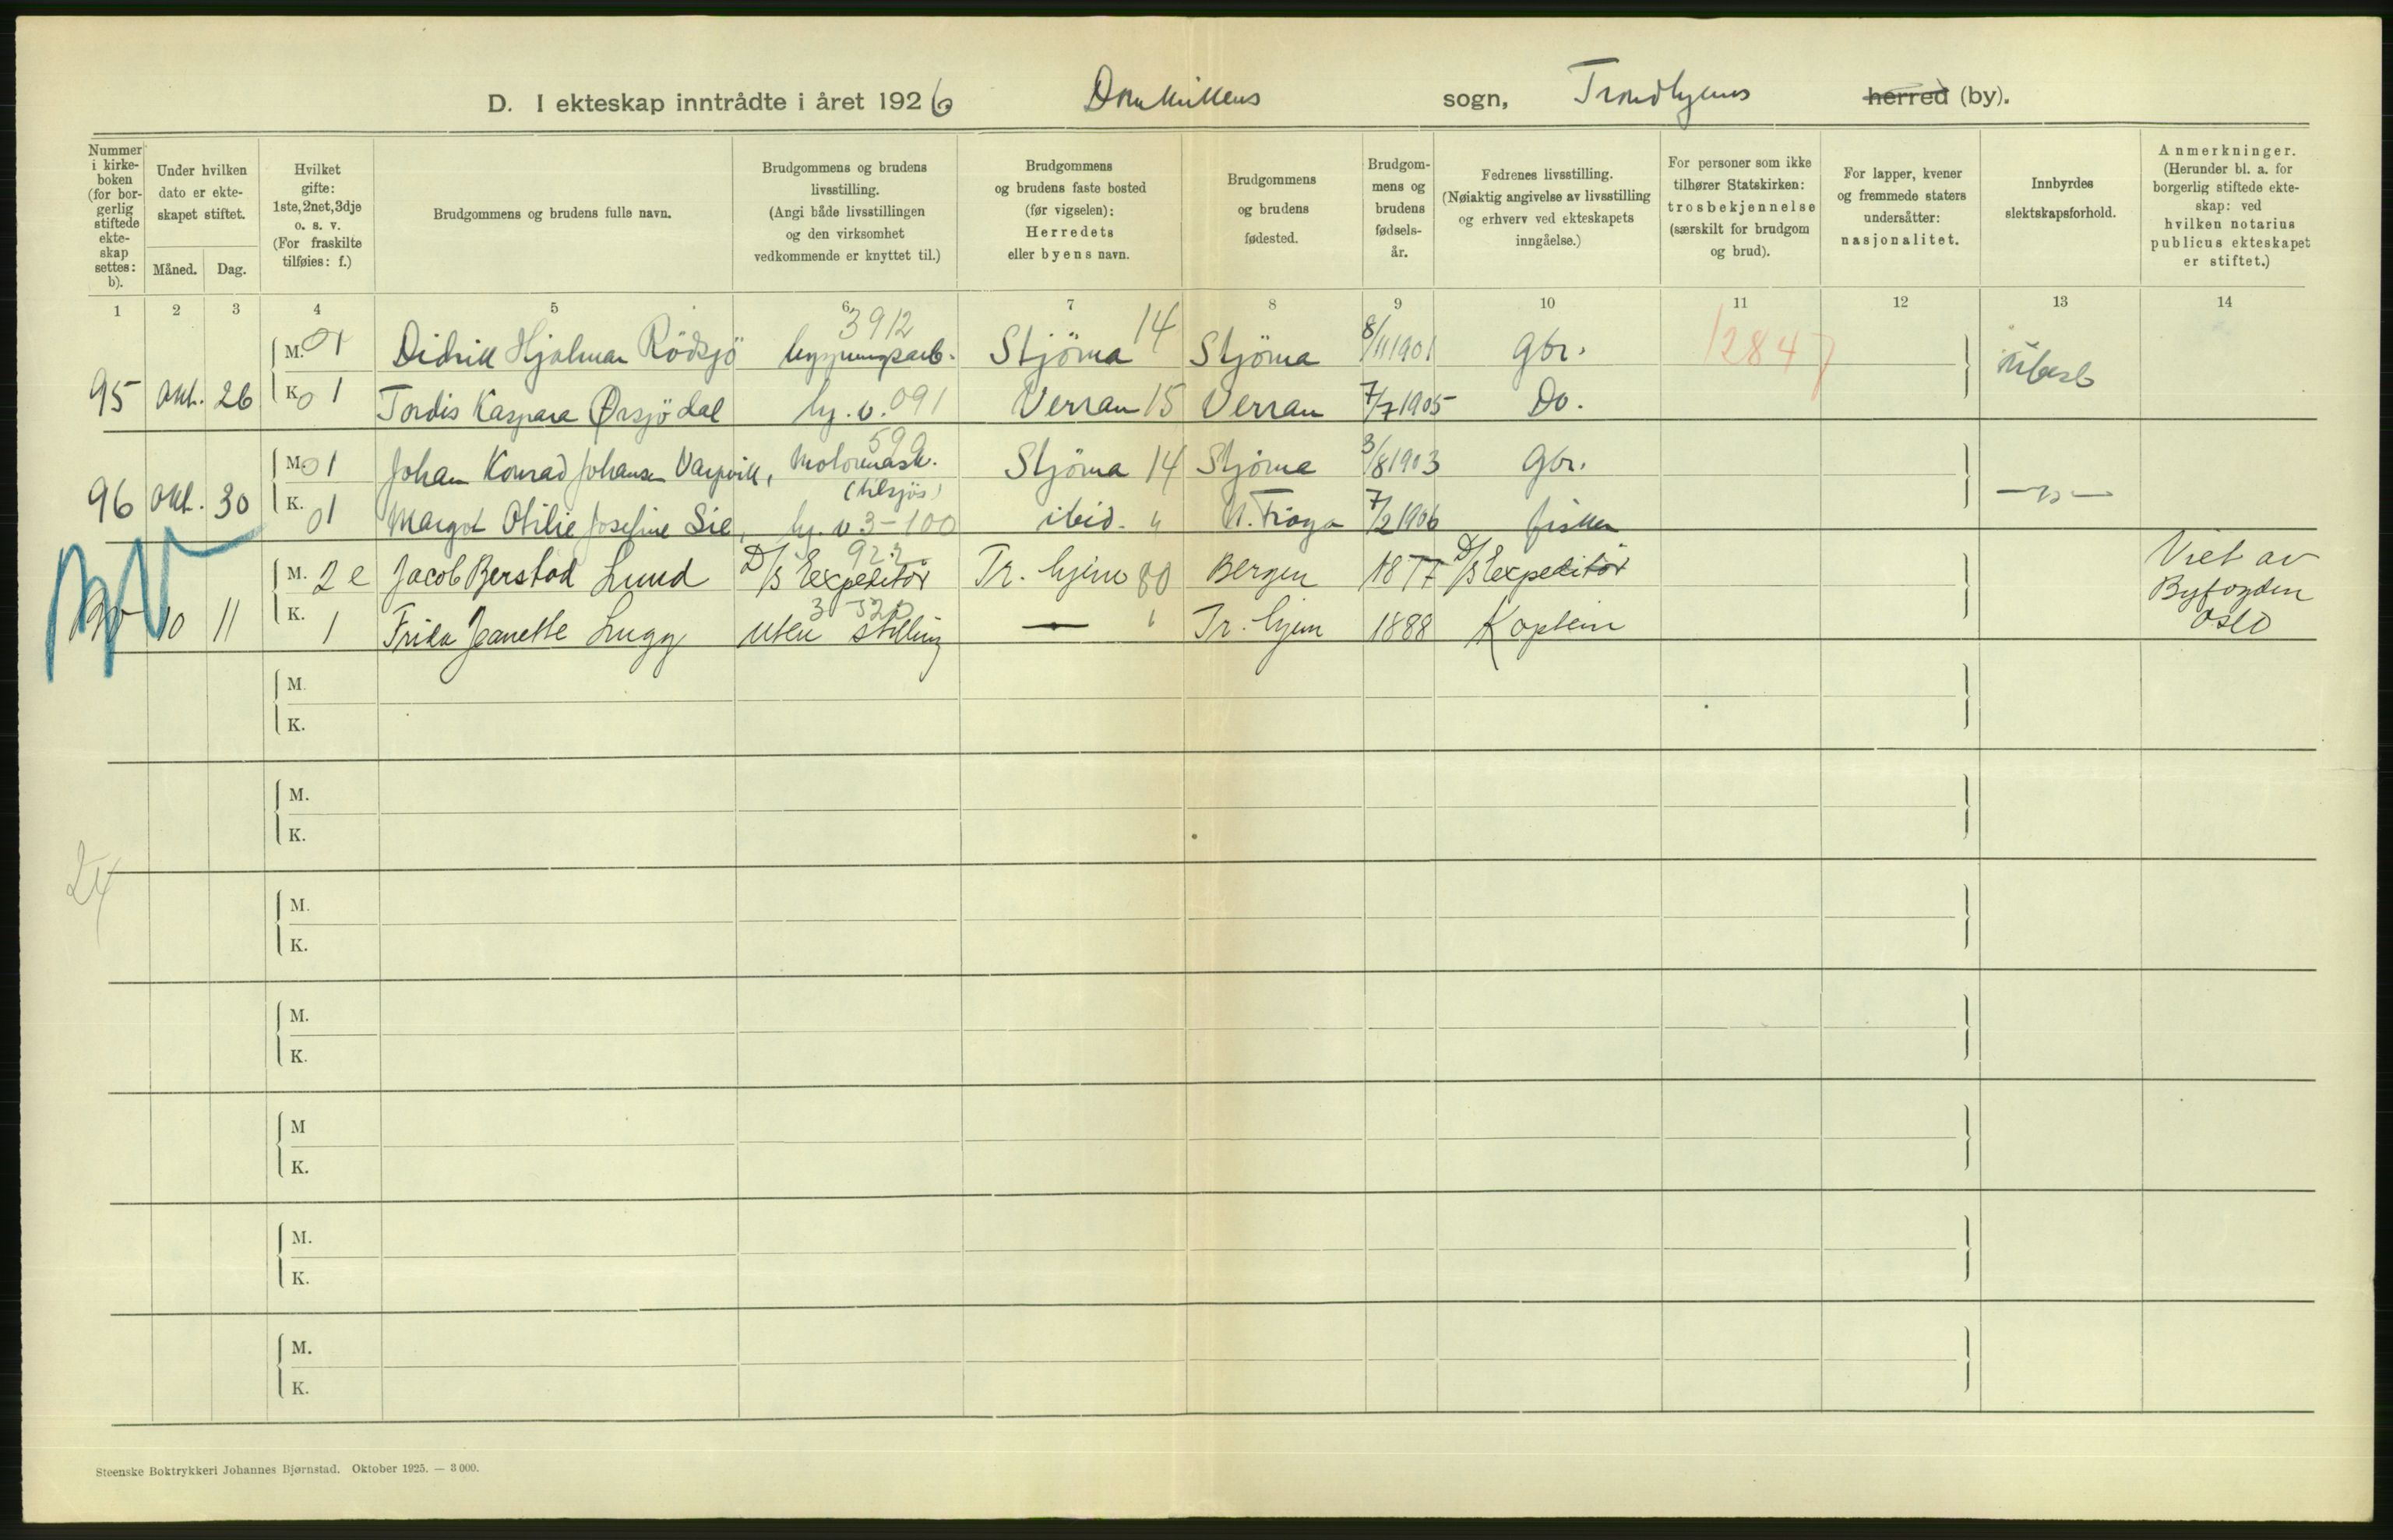 D. I ekteskap inntrådte i året 1926 Domkirkens sogn, Trondhjems herred (by).
Nummer i kirkeboken (for borgerlig stiftede ekteskap settes: b).
Under hvilken dato er ekteskapet stiftet.
Måned. Dag.
Hvilket gifte: 1ste, 2net, 3dje o. s. v. (For fraskilte tilføies: f.)
Brudgommens og brudens fulle navn.
Brudgommens og brudens livsstilling. (Angi både livsstillingen og den virksomhet vedkommende er knyttet til.)
Brudgommens og brudens faste bosted (før vigselen): Herredets eller byens navn.
Brudgommens og brudens fødested.
Brudgommens og brudens fødselsår.
Fedrenes livsstilling. (Nøiaktig angivelse av livsstilling og erhverv ved ekteskapets inngåelse.)
For personer som ikke tilhører Statskirken: trosbekjennelse (særskilt for brudgom og brud).
For lapper, kvener og fremmede staters undersåtter: nasjonalitet.
Innbyrdes slektskapsforhold.
Anmerkninger. (Herunder bl. a. for borgerlig stiftede ekteskap: ved hvilken notarius publicus ekteskapet er stiftet.)
1 2 3 4 5 6 7 8 9 10 11 12 13 14
3912 14
M. 01 Didrik Hjalmar Rödsjö bygningsarb. Stjörna Stjörna 8/11 1901 Gbr. 12847
95 Okt. 26 K. 01 Tordis Kaspara Ørsjödal hj. v. 091 Verran 15 Verran 7/7 1905 Do. Ubesl
599
M. 01 Johan Konrad Johansen Varpvik, Motormask. (tilsjös) Stjörna 14 Stjörna 3/8 1903 Gbr.
96 Okt. 30 K. 01 Margot Otilie Josefine Sie, hj. v. 3-100 ibid. " N. Fröya 7/2 1906 fisker —"—
922
M. 2 e Jacob Berstad Lund D/S Expeditör Tr. hjem 80 Bergen 1877 D/S Expeditör Viet av Byfogden Oslo
3 520
10 11 K. 1 Frida Jeanette Lugg uten stilling — " Tr. hjem 1888 Kaptein
M.
K.
M.
K.
M.
K.
M.
K.
M
K.
M.
K.
M.
K.
24
Steenske Boktrykkeri Johannes Bjørnstad. Oktober 1925. — 3 000.